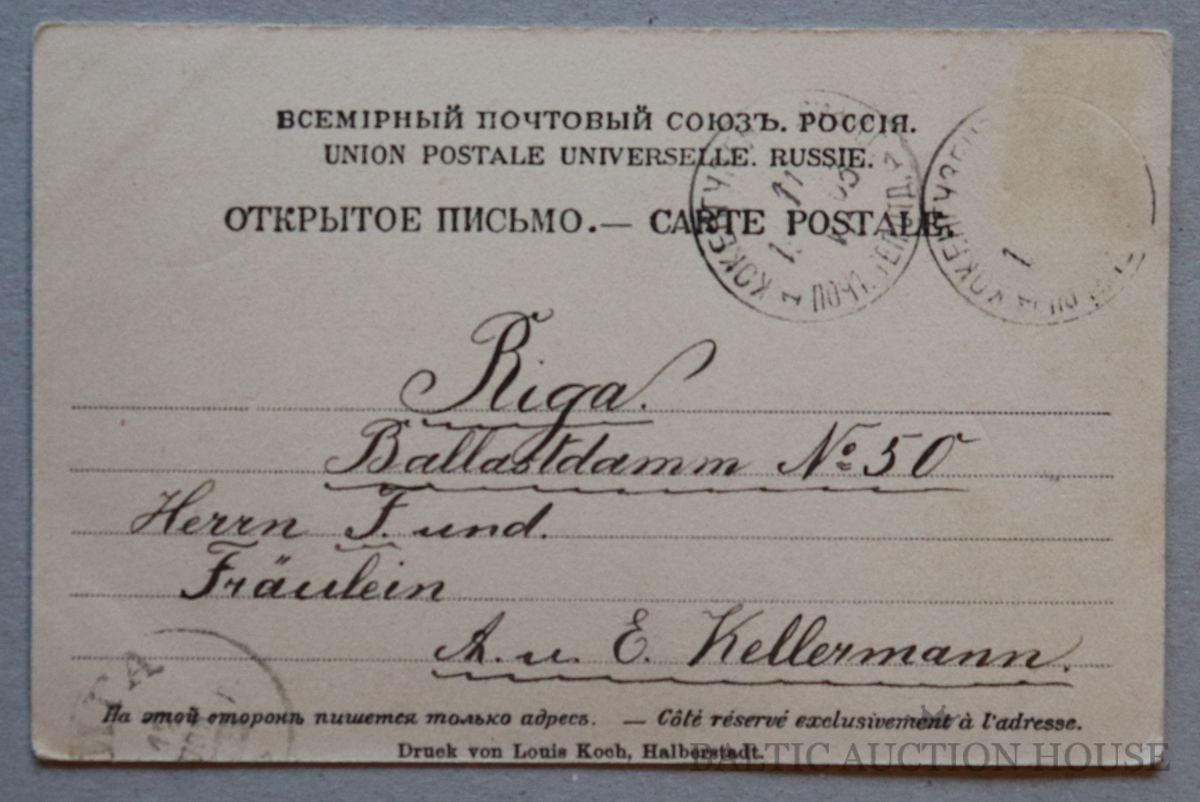 ВСЕМІРНЫЙ ПОЧТОВЫЙ СОЮЗЪ. РОССІЯ.
UNION POSTALE UNIVERSELLE. RUSSIE.
ОТКРЫТОЕ ПИСЬМО.— CARTE POSTALE.
Riga.
Ballastdamm № 50
Herrn F. und.
Fräulein
A. u. E. Kellermann.
На этой сторонѣ пишется только адресъ. — Côté réservé exclusivement à l'adresse.
Druck von Louis Koch, Halberstadt.
BALTIC AUCTION HOUSE